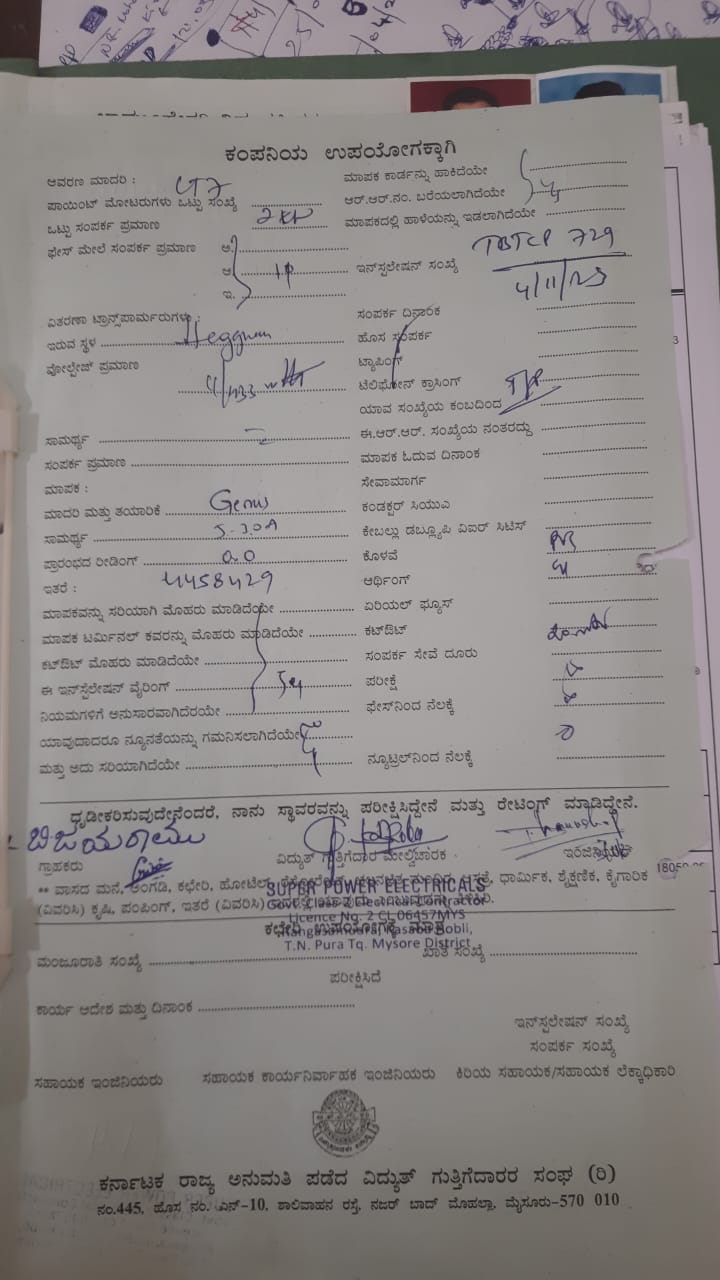 ಕಂಪನಿಯ ಉಪಯೋಗಕ್ಕಾಗಿ
ಆವರಣ ಮಾದರಿ : LT7
ಮಾಪಕ ಕಾರ್ಡನ್ನು ಹಾಕಿದೆಯೇ
ಪಾಯಿಂಟ್ ಮೋಟರುಗಳು ಒಟ್ಟು ಸಂಖ್ಯೆ
ಆರ್.ಆರ್.ನಂ. ಬರೆಯಲಾಗಿದೆಯೇ
ಒಟ್ಟು ಸಂಪರ್ಕ ಪ್ರಮಾಣ 2KW
ಮಾಪಕದಲ್ಲಿ ಹಾಳೆಯನ್ನು ಇಡಲಾಗಿದೆಯೇ
ಫೇಸ್ ಮೇಲೆ ಸಂಪರ್ಕ ಪ್ರಮಾಣ ಅ.
ಆ. 1P
ಇ.
ಇನ್‌ಸ್ಟಲೇಷನ್ ಸಂಖ್ಯೆ TBTCP 729
4/11/23
ವಿತರಣಾ ಟ್ರಾನ್ಸ್‌ಪಾರ್ಮರುಗಳು :
ಸಂಪರ್ಕ ದಿನಾಂಕ
ಇರುವ ಸ್ಥಳ
ಹೊಸ ಸಂಪರ್ಕ
ವೋಲ್ಟೇಜ್ ಪ್ರಮಾಣ
ಟ್ಯಾಪಿಂಗ್
ಟೆಲಿಫೋನ್ ಕ್ರಾಸಿಂಗ್
ಯಾವ ಸಂಖ್ಯೆಯ ಕಂಬದಿಂದ
ಸಾಮರ್ಥ್ಯ
ಈ.ಆರ್.ಆರ್. ಸಂಖ್ಯೆಯ ನಂತರದ್ದು
ಸಂಪರ್ಕ ಪ್ರಮಾಣ
ಮಾಪಕ ಓದುವ ದಿನಾಂಕ
ಮಾಪಕ :
ಸೇವಾಮಾರ್ಗ
ಮಾದರಿ ಮತ್ತು ತಯಾರಿಕೆ Genus
ಕಂಡಕ್ಟರ್ ಸಿಯುವಿ
ಸಾಮರ್ಥ್ಯ 5-30A
ಕೇಬಲ್ಲು ಡಬ್ಲ್ಯೂಪಿ ವಿಐರ್ ಸಿಟಿಸ್
ಪ್ರಾರಂಭದ ರೀಡಿಂಗ್ 0.0
ಕೊಳವೆ
ಇತರೆ : 4458429
ಆರ್ಥಿಂಗ್
ಮಾಪಕವನ್ನು ಸರಿಯಾಗಿ ಮೊಹರು ಮಾಡಿದೆಯೇ
ಏರಿಯಲ್ ಫ್ಯೂಸ್
ಮಾಪಕ ಟರ್ಮಿನಲ್ ಕವರನ್ನು ಮೊಹರು ಮಾಡಿದೆಯೇ
ಕಟ್‌ಔಟ್
ಕಟ್‌ಔಟ್ ಮೊಹರು ಮಾಡಿದೆಯೇ
ಸಂಪರ್ಕ ಸೇವೆ ದೂರು
ಈ ಇನ್‌ಸ್ಟೆಲೇಷನ್ ವೈರಿಂಗ್
ಪರೀಕ್ಷೆ
ನಿಯಮಗಳಿಗೆ ಅನುಸಾರವಾಗಿದೆಯೇ
ಫೇಸ್‌ನಿಂದ ನೆಲಕ್ಕೆ
ಯಾವುದಾದರೂ ನ್ಯೂನತೆಯನ್ನು ಗಮನಿಸಲಾಗಿದೆಯೇ
ಮತ್ತು ಅದು ಸರಿಯಾಗಿದೆಯೇ
ನ್ಯೂಟ್ರಲ್‌ನಿಂದ ನೆಲಕ್ಕೆ
ಧೃಡೀಕರಿಸುವುದೇನೆಂದರೆ, ನಾನು ಸ್ಥಾವರವನ್ನು ಪರೀಕ್ಷಿಸಿದ್ದೇನೆ ಮತ್ತು ರೇಟಿಂಗ್ ಮಾಡಿದ್ದೇನೆ.
ಬಿಜಯರಾಮು
ಗ್ರಾಹಕರು
ವಿದ್ಯುತ್ ಗುತ್ತಿಗೆದಾರ ಮೇಲ್ವಿಚಾರಕ
** ವಾಸದ ಮನೆ, ಅಂಗಡಿ, ಕಛೇರಿ, ಹೋಟೆಲ್, ಆಸ್ಪತ್ರೆ, ಧಾರ್ಮಿಕ, ಶೈಕ್ಷಣಿಕ, ಕೈಗಾರಿಕೆ
(ವಿವರಿಸಿ) ಕೃಷಿ, ಪಂಪಿಂಗ್, ಇತರೆ (ವಿವರಿಸಿ)
SUPER POWER ELECTRICALS
Govt. Class 2 Electrical Contractor
Licence No. 2 CL 06457MYS
Rangasamudra, Kasaba Hobli,
T.N. Pura Tq. Mysore District
ಕಛೇರಿ ಉಪಯೋಗಕ್ಕೆ ಮಾತ್ರ
ಮಂಜೂರಾತಿ ಸಂಖ್ಯೆ
ಖಾತೆ ಸಂಖ್ಯೆ
ಪರೀಕ್ಷಿಸಿದೆ
ಕಾರ್ಯ ಆದೇಶ ಮತ್ತು ದಿನಾಂಕ
ಇನ್‌ಸ್ಟಲೇಷನ್ ಸಂಖ್ಯೆ
ಸಂಪರ್ಕ ಸಂಖ್ಯೆ
ಸಹಾಯಕ ಇಂಜಿನಿಯರು ಸಹಾಯಕ ಕಾರ್ಯನಿರ್ವಾಹಕ ಇಂಜಿನಿಯರು ಕಿರಿಯ ಸಹಾಯಕ/ಸಹಾಯಕ ಲೆಕ್ಕಾಧಿಕಾರಿ
ಕರ್ನಾಟಕ ರಾಜ್ಯ ಅನುಮತಿ ಪಡೆದ ವಿದ್ಯುತ್ ಗುತ್ತಿಗೆದಾರರ ಸಂಘ (ರಿ)
ನಂ.445, ಹೊಸ ನಂ. ಎನ್-10, ಶಾಲಿವಾಹನ ರಸ್ತೆ, ನಜರ್ ಬಾದ್ ಮೊಹಲ್ಲಾ, ಮೈಸೂರು-570 010